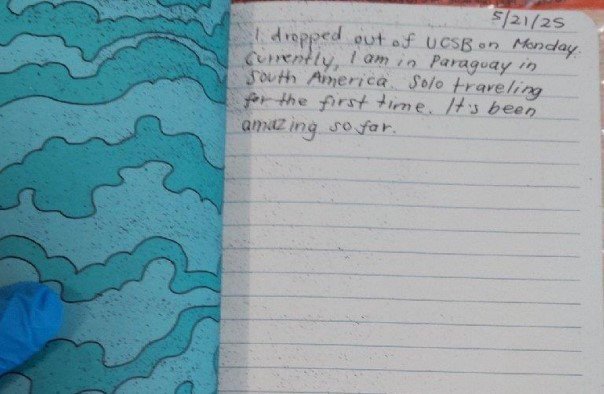 5/21/25
I dropped out of UCSB on Monday.
Currently, I am in Paraguay in
South America. Solo traveling
for the first time. It's been
amazing so far.